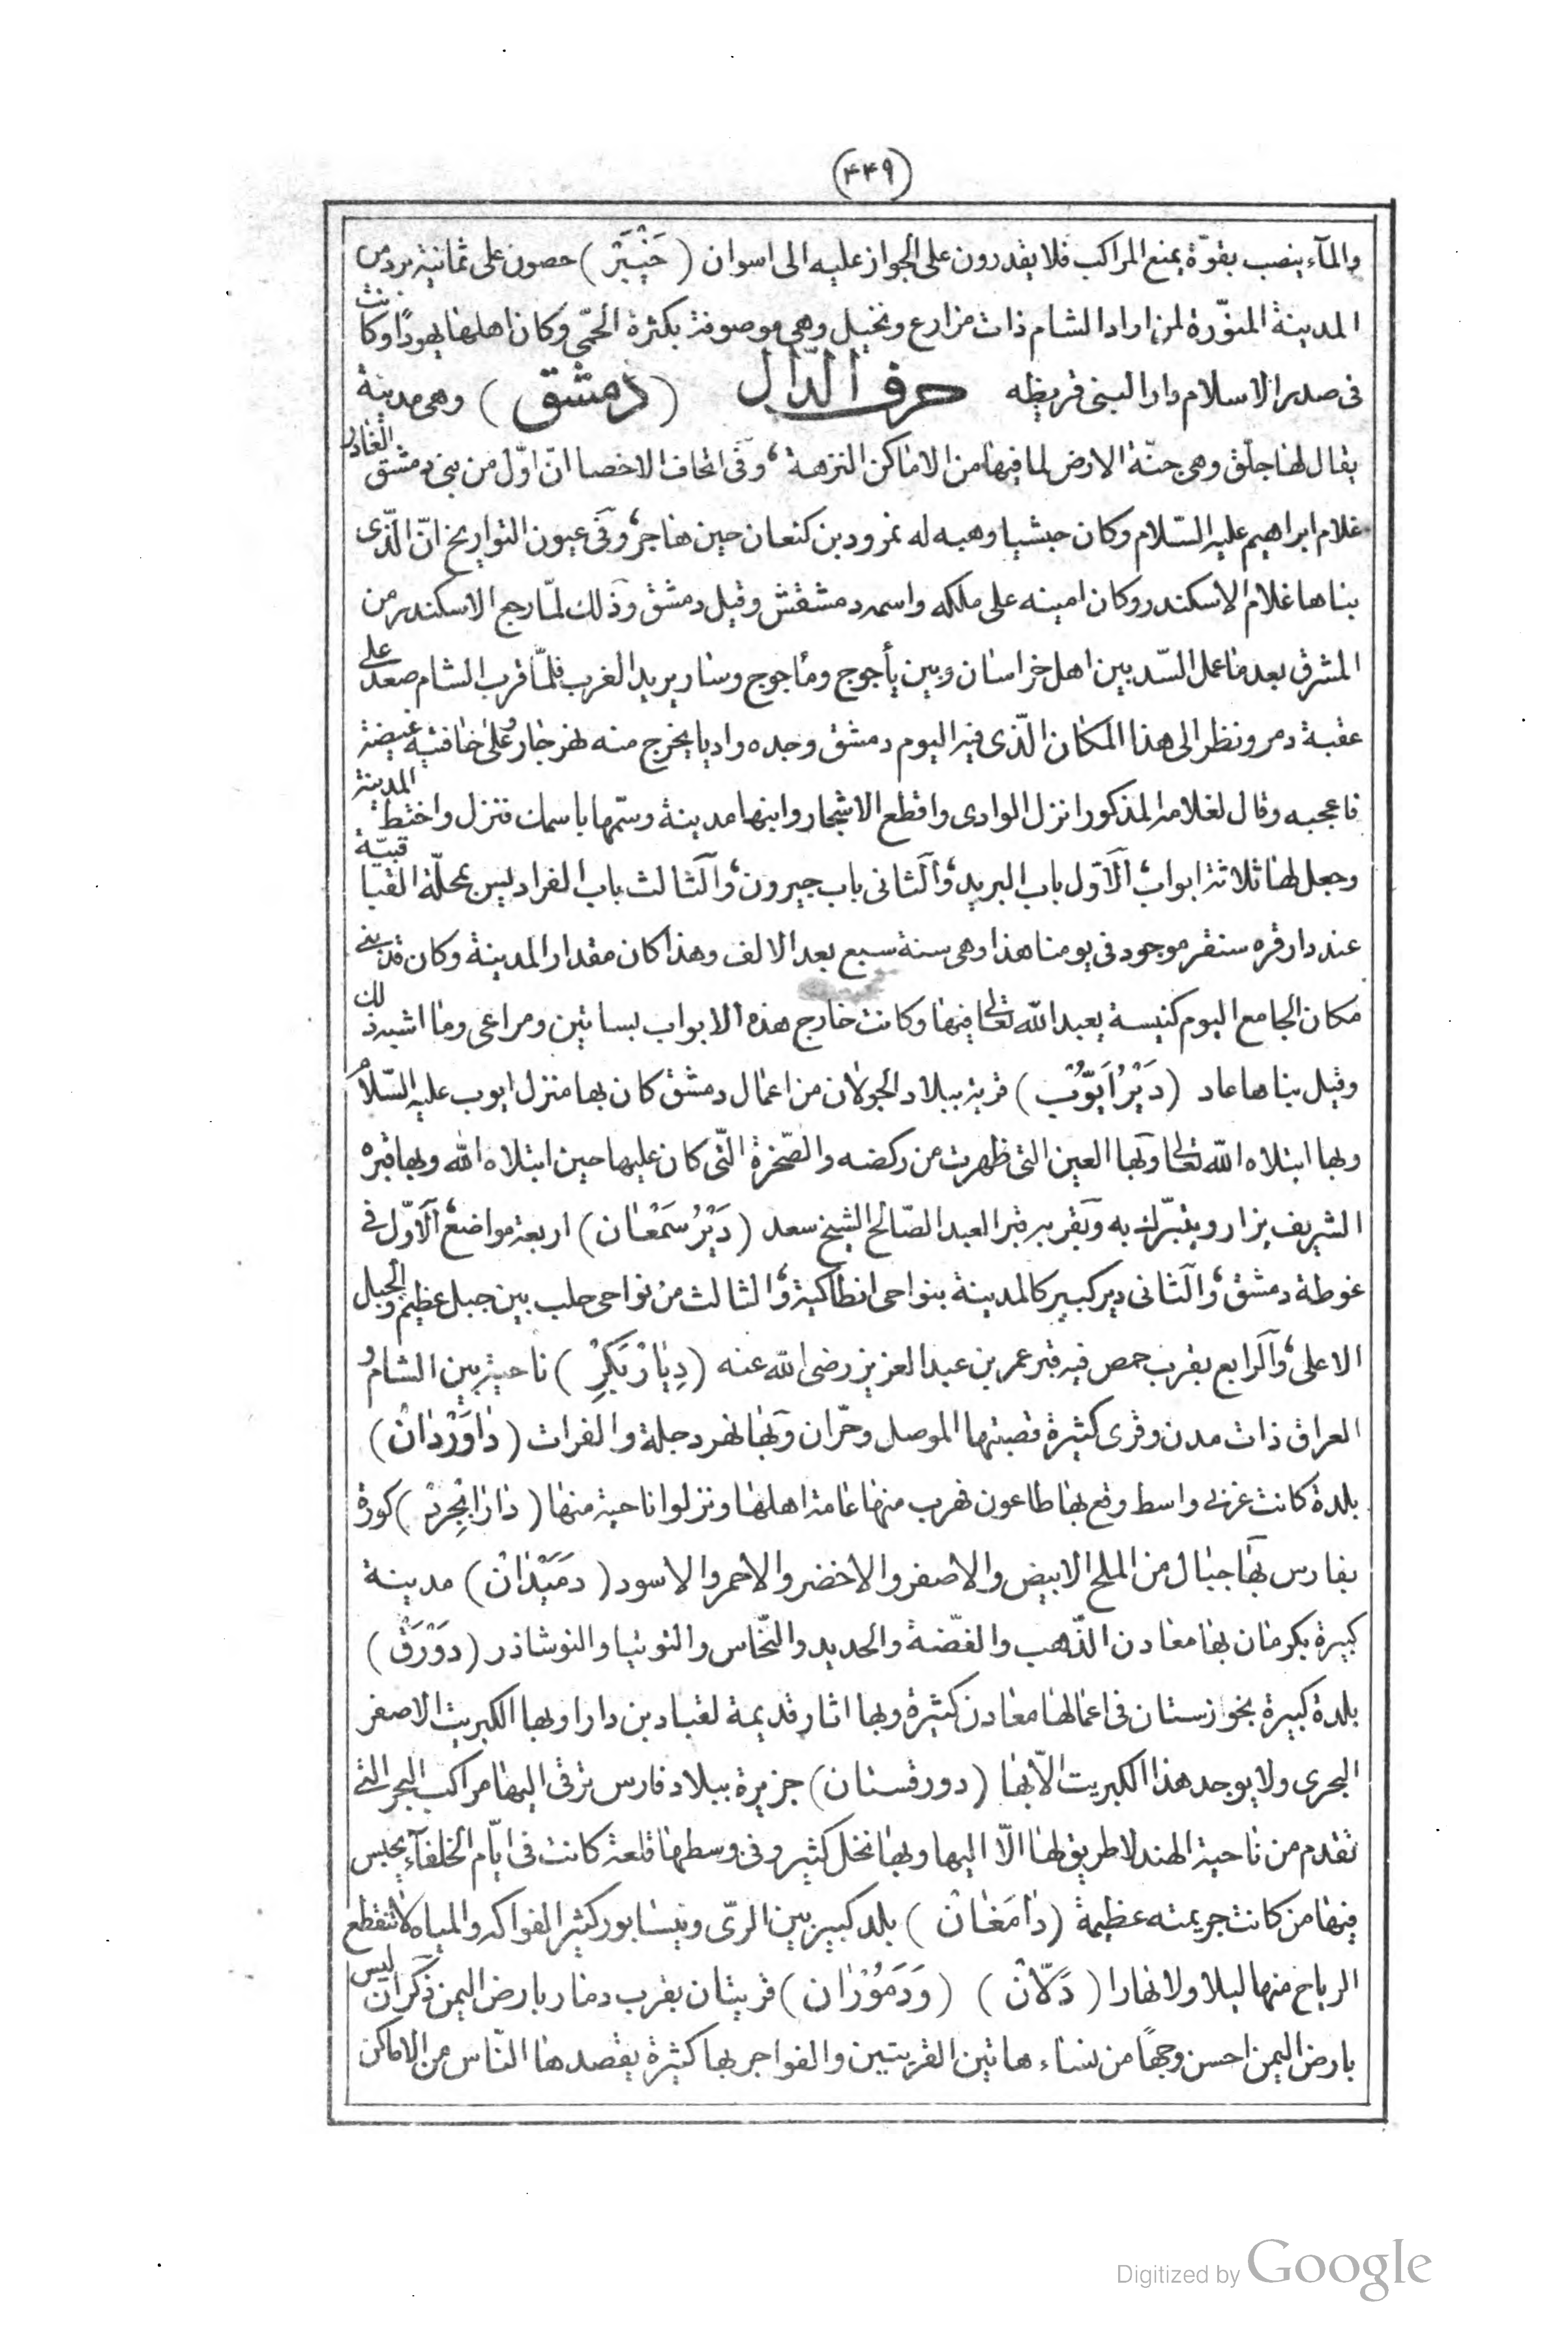 (٤٤٩)
والمآء ينصب بقوّة يمنع المراكب فلا يقدرون على الجواز عليه الى اسوان (خَيْبَرْ) حصون على ثمانية برد من
المدينة المنوّرة لمن اراد الشام ذات مزارع ونخيل وهى موصوفة بكثرة الحمّى وكان اهلها يهودًا وكانت
فى صدر الاسلام دار البنى قريظه حرف الدّال (دمشق) وهى مدينة
يقال لها جلق وهى جنّة الارض لما فيها من الاماكن النزهة، وفى اتحاف الاخصا انّ اوّل من بنى دمشق العادر
غلام ابراهيم عليه السّلام وكان حبشيا وهبه له نمرود بن كنعان حين هاجر، وفى عيون التواريخ انّ الّذى
بناها غلام الاسكندر وكان امينه على ملكه واسمه دمشقش وقيل دمشق وذلك لمّا رجع الاسكندر من
المشرق بعد ما عمل السّد بين اهل خراسان وبين يأجوج ومأجوج وسار يريد الغرب فلمّا قرب الشام صعد على
عقبة دمر ونظر الى هذا المكان الّذى فيه اليوم دمشق وجده واديا يخرج منه نهر جار وعلى حافتيه غيضة
فاعجبه وقال لغلامه المذكور انزل الوادى واقطع الاشجار وابنها مدينة وسمّها باسمك فنزل واختط المدينة
وجعل لها ثلاثة ابواب، الاوّل باب البريد، والثانى باب جيرون، والثالث باب الفراديس بمحلّة القباقبيّة
عند دار قره سنقر موجود فى يومنا هذا وهى سنة سبع بعد الالف وهذا كان مقدار المدينة وكان قد بنى
مكان الجامع اليوم كنيسة يعبد الله تعالى فيها وكانت خارج هذه الابواب بساتين ومراعى وما اشبه ذلك
وقيل بناها عاد (دَيْرُ اَيُّوُبْ) قرية ببلاد الجولان من اعمال دمشق كان بها منزل ايوب عليه السّلام
وبها ابتلاه الله تعالى وبها العين التى ظهرت من ركضه والصّخرة الّتى كان عليها حين ابتلاه الله وبها قبره
الشريف يزار ويتبرّك به وبقربه قبر العبد الصّالح الشيخ سعد (دَيْرُ سَمْعَان) اربعة مواضع، الاوّل فى
غوطة دمشق، والثانى دير كبير كالمدينة بنواحى انطاكية، والثالث من نواحى حلب بين جبل عظيم والجبل
الاعلى، والرابع بقرب حمص فيه قبر عمر بن عبد العزيز رضى الله عنه (دِيَارْ بَكِرْ) ناحية بين الشام و
العراق ذات مدن وقرى كثيرة قصبتها الموصل وحرّان وبها نهر دجلة والفرات (دَاوَرْدَانْ)
بلدة كانت غربى واسط وقع بها طاعون فهرب منها عامة اهلها ونزلوا ناحية منها (دَارَابْجِرْدْ) كورة
بفارس بها جبال من الملح الابيض والاصفر والاخضر والاحمر والاسود (دمَيْدَانْ) مدينة
كبيرة بكرمان بها معادن الذّهب والفضّة والحديد والنّحاس والتوتيا والنوشاذر (دَوْرَقْ)
بلدة كبيرة بخوزستان فى اعمالها معادن كثيرة وبها اثار قديمة لقباد بن دارا وبها الكبريت الاصفر
البحرى ولا يوجد هذا الكبريت الّا بها (دورقستان) جزيرة ببلاد فارس ترقى اليها مراكب البحر التى
تقدم من ناحية الهند لا طريق لها الّا اليها وبها نخل كثير وفى وسطها قلعة كانت فى ايّام الخلفآء يحبس
فيها من كانت جريمته عظيمة (دَامَغَانْ) بلد كبير بين الرىّ ونيسابور كثير الفواكه والمياه لا تنقطع
الرياح منها ليلا ولا نهارا (دَلّانْ) (وَدَمَوُرَان) قريتان بقرب دمار بارض اليمن ذكر ان ليس
بارض اليمن احسن وجهًا من نساء هاتين القريتين والفواجر بها كثيرة يقصدها النّاس من الاماكن
Digitized by Google